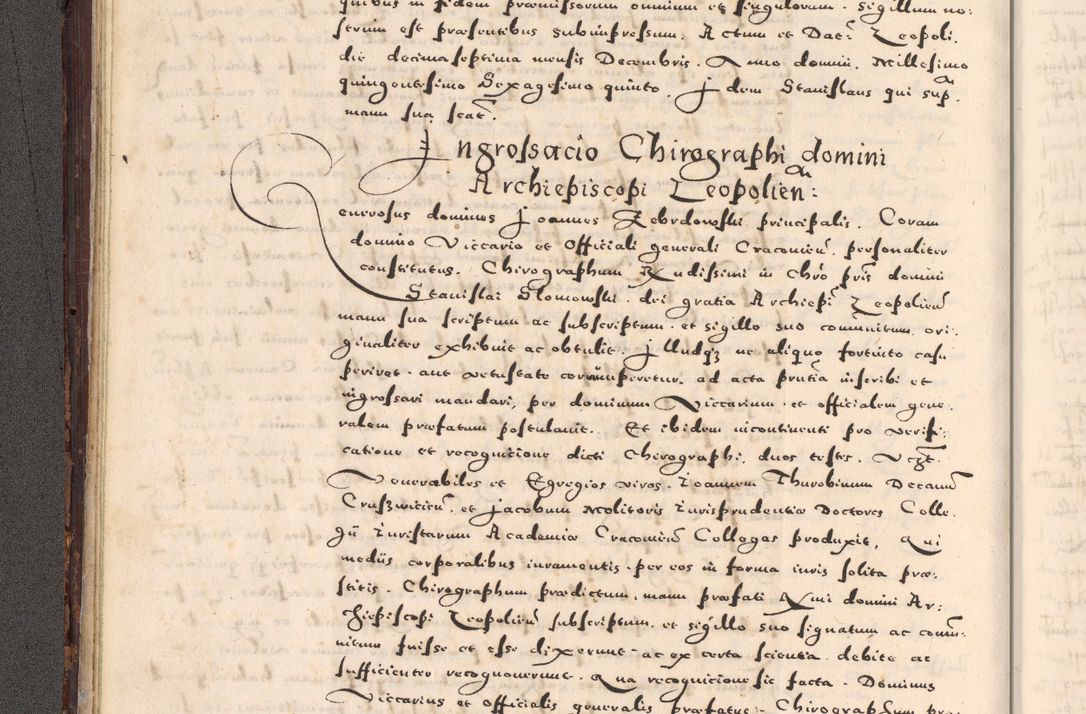 quibus in fidem præmissorum omnium et singulorum. sigillum no:
strum est præsentibus subimpressum. Actum et Dat: Leopoli.
die decima septima mensis Decembris. Anno domini. Millesimo
quingentesimo Sexagesimo quinto. Idem Stanislaus qui sup̃.
manu sua scat̃.
Ingrossacio Chirographi domini
Archiepiscopi Leopolień:
Generosus dominus Joannes Zebrdowski principalis. Coram
domino Viccario et Officiali generali Cracovień. personaliter
constitutus. Chirographum Rndissimi in Chrõ pris̃ domini
Stanislai Slomowski. dei gratia Archiepĩ Leopolień
manu sua scriptum ac subscriptum. et sigillo suo communitum ori:
ginaliter exhibuit ac obtulit. Illudqz ne aliquo fortuito casu
periret. aut vetustate corrumperetur. ad acta pñtia inscribi et
ingrossari mandari, per dominum Viccarium et officialem gene:
ralem præfatum postulavit. Et ibidem incontinenti pro verifi:
catione et recognitione dicti Chirographi, duos testes. Vczt.
Venerabiles et Egregios viros. Joannem Thurobinum Decanũ
Cruszwicień. et Jacobum Molitoris Jurisprudentiæ Doctores Colle.
gii Juristarum Academiæ Cracovień Collegas produxit, Qui
mediis corporalibus iuramentis. per eos in forma iuris solita præ:
stitis. Chirographum prædictum. manu præfati Rmi domini Ar:
chiepiscopi Leopolień subscriptum. et sigillo suo signatum ac comũ:
nitum fuisse et esse dixerunt. ac ex certa scientia. debite ac
sufficienter recognoverunt. Qua recognicione sic facta. Dominus
Viccarius et Officialis generalis præfatus. Chirographum præ